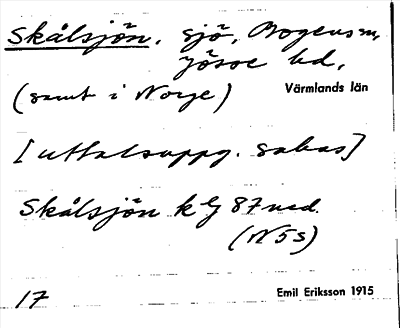 Skålsjön, sjö, Bogens sn,
Jösse hd,
(samt i Norge) Värmlands län
[uttalsuppg. saknas]
Skålsjön k 87 ned.
(N 5 s)
17 Emil Eriksson 1915